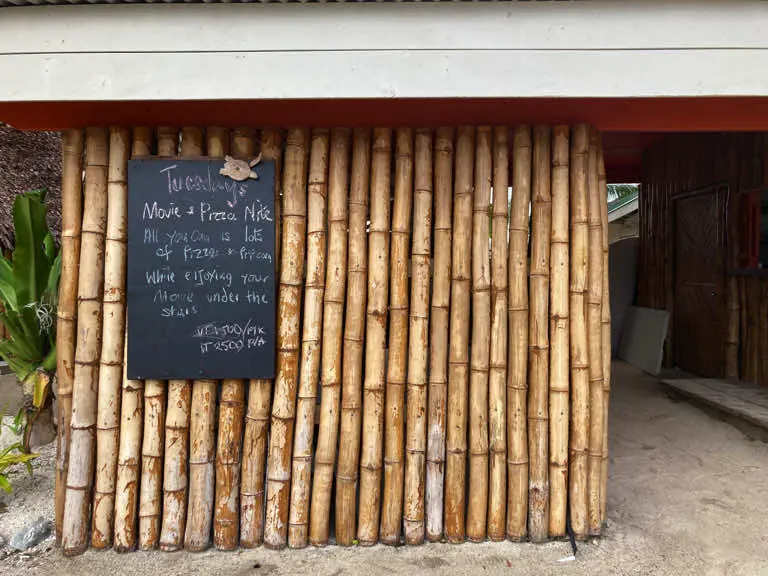 Tuesdays
Movie & Pizza Nite
All you can is lots
of Pizza & Popcorn
While enjoying your
Movie under the
stars
2500